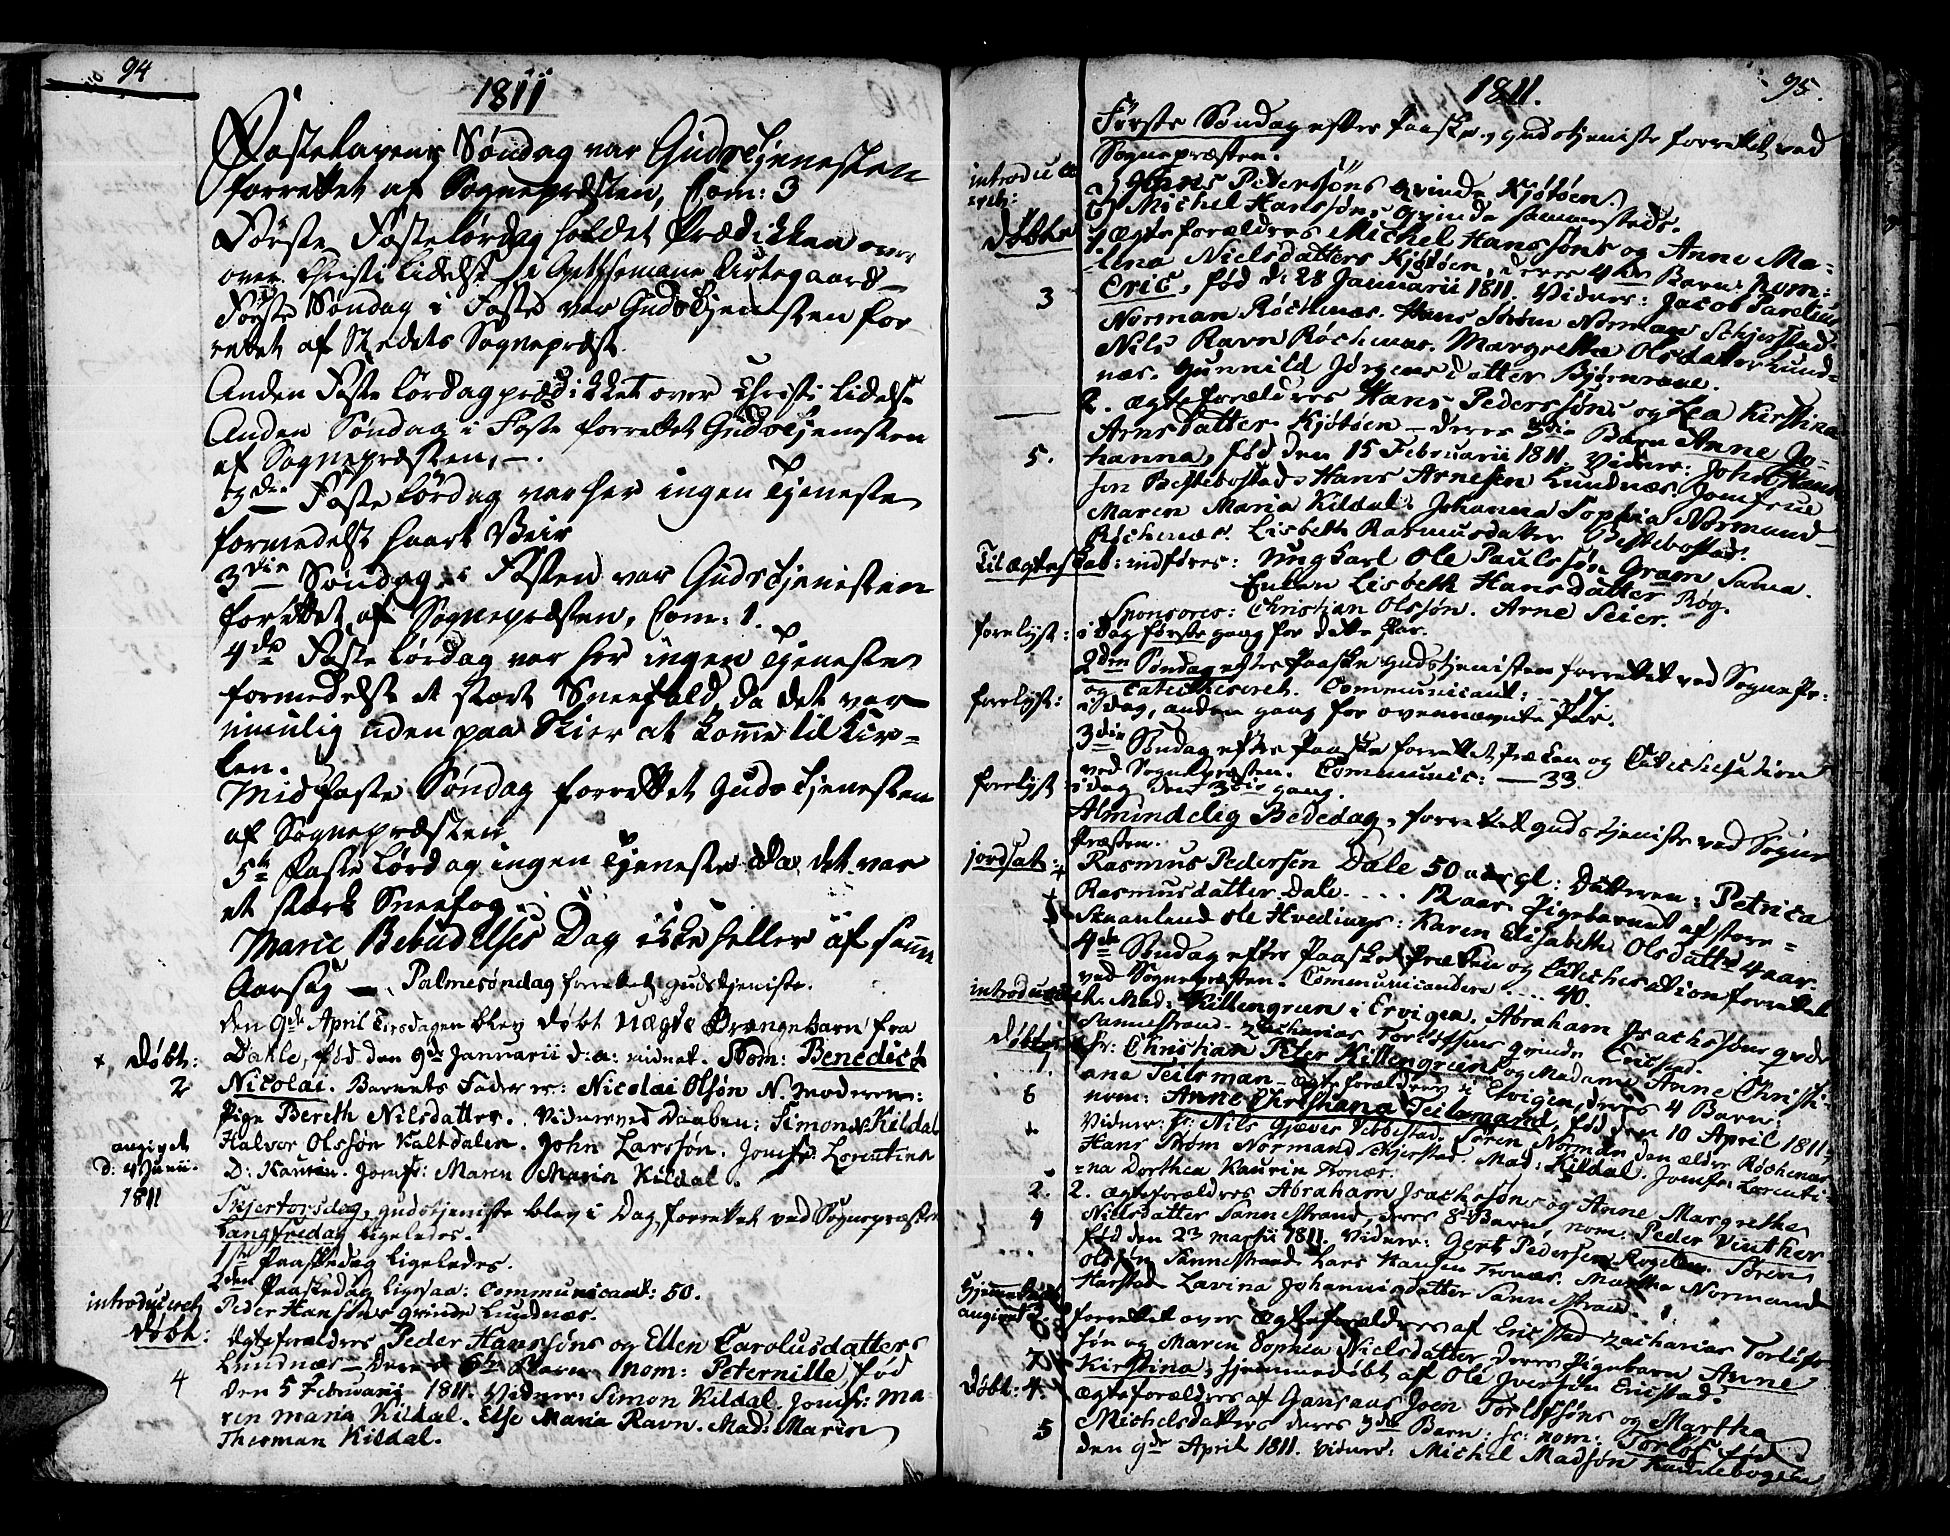 94
1811
Fastelavens Søndag var Gudstjenesten
forrettet af Sognepræsten, Com: 3
Første Fastelørdag holdet Prædikken over
over Christi Lidelse i Gethsemane Urtegaard
Første Søndag i Faste var Gudstjenesten for
rettet af Stedets Sognepræst.
Anden Fastelørdag prædikket over Christi Lidelse
Anden Søndag i Faste forrettet Gudstjenesten
af Sognepræsten, —.
3die Fastelørdag var her ingen Tjeneste
formedelst haart Veir
3die Søndag i Fasten var Gudstjenisten
forrettet af Sognepræsten, Com: 1.
4de Fastelørdag var her ingen Tjeneste
formedelst et stort Sneefald, da det var
umulig uden paa Skier at komme til Kir-
ken.
Midfaste Søndag forrettet Gudstjenesten
af Sognepræsten
5te Fastelørdag ingen Tjeneste da det var
et stærk Sneefog.
Mariæ Bebudelses Dag ikke heller af samme
Aarsag —. Palmesøndag forrettet gudstjeniste.
den 9de April Tirsdagen blev døbt uægte Drengebarn fra
+, Døbt: Dahle, fød den 9de Januarii d: a: Nom: Benedict
2 Nicolai. Barnets Fader er: Nicolai Olsøn N. Moderen:
Pige Bereth Nilsdatter. Vidner ved Daaben: Simon Kildal
angivet Halvor Olssøn Kaltdalen. John Larssøn. Jomfr: Lorentina
d: 4 Junii. D: Kaurin. Jomfr: Maren Maria Kildal.
1811
Skjertorsdag, gudstjeniste blev i Dag forrettet ved Sognepræsten
Langfredag ligeledes.
1ste Paaskedag ligeledes.
2den Paaskedag ligesaa: Communicant: 50.
introduceret Peder Hanssøns qvinde Lundnæs.
Døbt: Ægteforældres Peder Hanssøns og Ellen Carolusdatters
Lundnæs — deres Barn Nom: Peternille fød
4 den 5 Februarii 1811. Vidner: Simon Kildal. Jomfr: Ma-
ren Maria Kildal. Else Maria Ravn. Mad: Maren
Thieman Kildal.
95.
1811.
Første Søndag efter Paaske, gudstjeniste forrettet ved
Sognepræsten.
introduce a) Hans Pederssøns qvinde Kjøtøen.
ret: b) Michel Hanssøns qvinde Sammesteds.
Døbte 1. Ægteforældres Michel Hanssøns og Anne Ma-
lena Nielsdatters Kjøtøen, deres 4de Barn: Nom:
3 Eric, fød d: 28 Januarii 1811. Vidner: Jacob Parelius
Norman Røchenæs. Hans Strøm Norman Schjerstad.
Nils Ravn Røchenæs. Margrethe Olsdatter Lund-
næs. Gunnild Jørgensdatter Bjørnraae.
2. Ægteforældres Hans Pederssøns og Lea Kirstina
Arnsdatter Kjøtøen — deres 3die Barn Anne Jo-
5. hanna, fød den 15 Februarii 1811. Vidner: John Han-
sen Bestebostad. Hans Arnesen Lundnæs. Jomfrue
Maren Maria Kildal. Johanna Sophia Normand
Røchenæs. Lisbeth Rasmusdatter Bestebostad.
Til Ægteskab: indføres: Ungkarl Ole Paulssøn Gram Sama.
Enken Lisbeth Hansdatter Røg.
Sponsores: Christian Olssøn. Arne Seier.
forelyst: i Dag første gang for dette Par.
2den Søndag efter Paaske gudstjenisten forrettet ved Sognepr:
og Catechiseret. Communicant: — 17.
forelyst: i Dag, anden gang for ovennævnte Par.
3die Søndag efter Paaske forrettet Præken og Catechisation
ved Sognepræsten. Communic: — 33.
forelyst i Dag den 3die gang.
Almindelig Bededag, forrettet gudstjeniste ved Sogne
Præsten.
jordsat: 4 Rasmus Pedersen Dale 50 aar gl: Datteren: Petrica
Rasmusdatter Dale. ... 12 aar. Pigebarnet af store-
5 Skaanland Ole Hvedings: Karen Elisabeth Olsdatter 4 aar.
4de Søndag efter Paaske Præken og Catechisation forrettet
ved Sognepræsten. Communicantere .... 40.
introduceret: Mad: Killengreen i Ervigen. Abraham Isachssøns qvde
Sannestrand. Zacharias Torlofsens qvinde Ericstad.
Døbte Hr: Christian Peter Killengreens og Madame Anne Christi-
1 ana Teilsman — Ægteforældres i Ervigen, deres 4 Barn:
6 nom: Anne Christiana Teilsmand, fød den 10 April 1811.
Vidner: Hr: Nils Giæver Ibbestad. Søren Norman den ældre Røchenæs.
Hans Strøm Normand Schjerstad. Mad: Kildal. Jomfr: Lorenti-
na Dorthea Kaurin Tronæs.
2. 2. Ægteforældres Abraham Isachssøns og Anne Margrethe
4 Nielsdatter Sannestrand, deres 8de Barn, nom: Peder Vinther
fød den 2den Martii 1811. Vidner: Gert Pedersen. Søren
Olssen Sannestrand. Lars Hansen Tronæs. Martha Normand
Harstad. Lavina Johannisdatter Sannestrand.
Hjemmedøbt
angivet 3. forrettet over Ægteforældres af Ericstad Zacharias Torlofs-
søn og Maren Sophia Nielsdatter deres Pigebarn Anne
7 Kirstina, hjemmedøbt af Ole Iversøn Ericstad.
Døbt: 4. Ægteforældres af Gansaas Joen Torlofssøns og Martha
5 Michelsdatters deres 3die Barn: nom: Torlof fød
den 9de April 1811. Vidner: Michel Madsøn Kannebogen